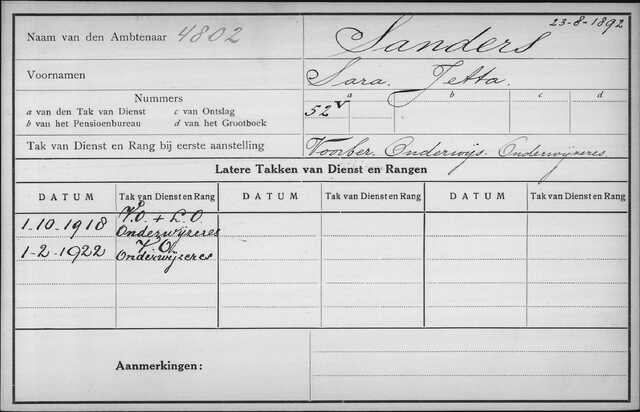 23-8-1892
Naam van den Ambtenaar 4802 Sanders
Voornamen Sara. Jetta.
Nummers a b c d
a van den Tak van Dienst c van Ontslag 52 v
b van het Pensioenbureau d van het Grootboek
Tak van Dienst en Rang bij eerste aanstelling Voorber. Onderwijs. Onderwijseres.
Latere Takken van Dienst en Rangen
DATUM Tak van Dienst en Rang DATUM Tak van Dienst en Rang DATUM Tak van Dienst en Rang
1-10-1918 V.O. + L.O
Onderwijseres
1-2-1922 V.O.
Onderwijseres
Aanmerkingen: